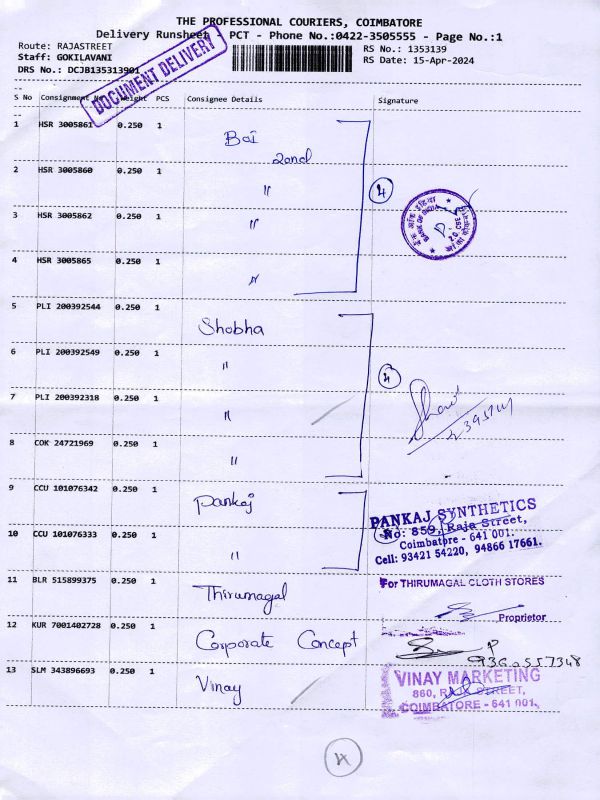 THE PROFESSIONAL COURIERS, COIMBATORE
Delivery Runsheet PCT - Phone No.:0422-3505555 - Page No.:1
Route: RAJASTREET
Staff: GOKILAVANI
DRS No.: DCJB135313901
RS No.: 1353139
RS Date: 15-Apr-2024
DOCUMENT DELIVERY
S No Consignment Weight PCS Consignee Details Signature
1 HSR 3005861 0.250 1 BOI
2 HSR 3005860 0.250 1 "
3 HSR 3005862 0.250 1 "
4 HSR 3005865 0.250 1 "
4
BANK OF INDIA
5 PLI 200392544 0.250 1 Shobha
6 PLI 200392549 0.250 1 "
7 PLI 200392318 0.250 1 "
8 COK 24721969 0.250 1 "
4
9 CCU 101076342 0.250 1 Pankaj
10 CCU 101076333 0.250 1 "
PANKAJ SYNTHETICS
No: 859, Raja Street,
Coimbatore - 641 001.
Cell: 93421 54220, 94866 17661.
11 BLR 515899375 0.250 1 Thirumagal
For THIRUMAGAL CLOTH STORES
Proprietor
12 KUR 7001402728 0.250 1 Corporate Concept
13 SLM 343896693 0.250 1 Vinay
VINAY MARKETING
860, RAJA STREET,
COIMBATORE - 641 001.